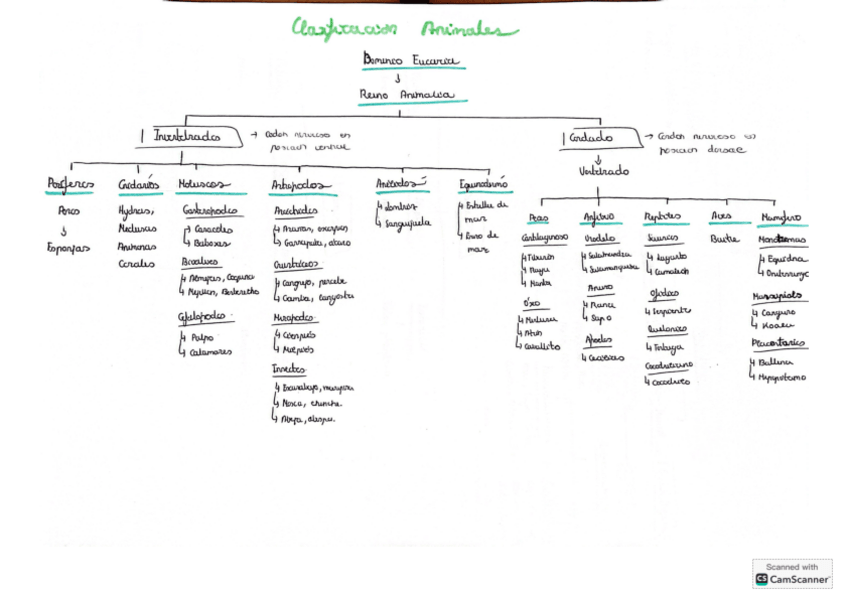 Clasificación Animales
Dominio Eucaria
Reino Animalia
Invertebrados
→ Cordon nervioso en
posición ventral
Cordado
→ Cordon nervioso en
posicion dorsal
Vertebrado
Poríferos
Poros
Esponjas
Cnidarios
Hydras,
Medusas
Anemonas
Corales
Moluscos
Gasteropodos
Caracoles
Babosas
Bivalvos
Almejas, Coquina
Mejillon, Berberecho
Cefalopodos
Pulpo
Calamares
Artropodos
Aracnidos
Aranas, escorpion
Garrapata, acaro
Crustaceos
Cangrejo, percebe
Gamba, langosta
Miriapodos
Ciempies
Milpies
Insectos
Escarabajo, mariposa
Mosca, chinche.
Abeja, avispa.
Anelidos
Lombriz
Sanguijuela
Equinodermo
Estrella de
mar
Erizo de
mar
Peces
Cartilaginoso
Tiburon
Raya
Manta
Óseo
Atun
Caballito
Anfibio
Urodelo
Salamandra
Salamanquesa
Anuro
Rana
Sapo
Apodos
Cecilias
Reptiles
Saurios
Lagarto
Camaleon
Ofidios
Serpiente
Quelonios
Tortuga
Cocodriliano
Cocodrilo
Aves
Buitre
Mamifero
Monotremas
Equidna
Ornitorrinco
Marsupiales
Canguro
Koala
Placentarios
Ballena
Hipopotamo
Scanned with
CS CamScanner